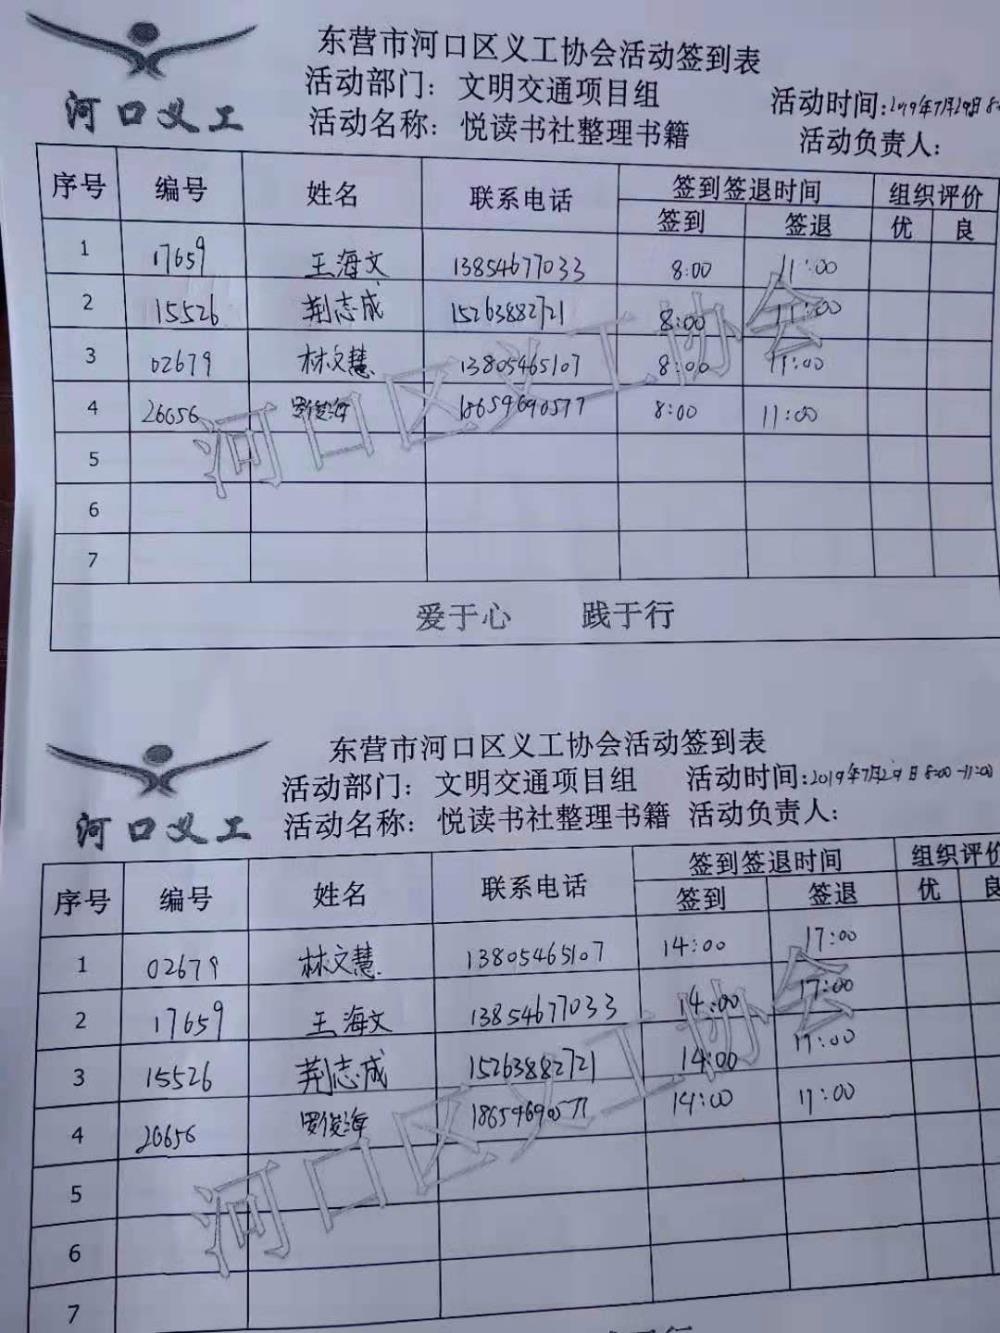 东营市河口区义工协会活动签到表
活动部门：文明交通项目组
活动时间:2019年7月29日8:
河口义工
活动名称：悦读书社整理书籍
活动负责人:
序号 编号 姓名 联系电话 签到签退时间 组织评价
签到 签退 优 良
1 17659 王海文 13854677033 8:00 11:00
2 15526 荆志成 15263882721 8:00 11:00
3 02679 林文慧 13805465107 8:00 11:00
4 26656 罗俊海 18659690577 8:00 11:00
5
6
7
河口区义工协会
爱于心 践于行
东营市河口区义工协会活动签到表
活动部门：文明交通项目组 活动时间:2019年7月29日8:00-11:00
河口义工
活动名称：悦读书社整理书籍 活动负责人:
序号 编号 姓名 联系电话 签到签退时间 组织评价
签到 签退 优 良
1 02679 林文慧 13805465107 14:00 17:00
2 17659 王海文 13854677033 14:00 17:00
3 15526 荆志成 15263882721 14:00 17:00
4 26656 罗俊海 18659690577 14:00 17:00
5
6
7
河口区义工协会